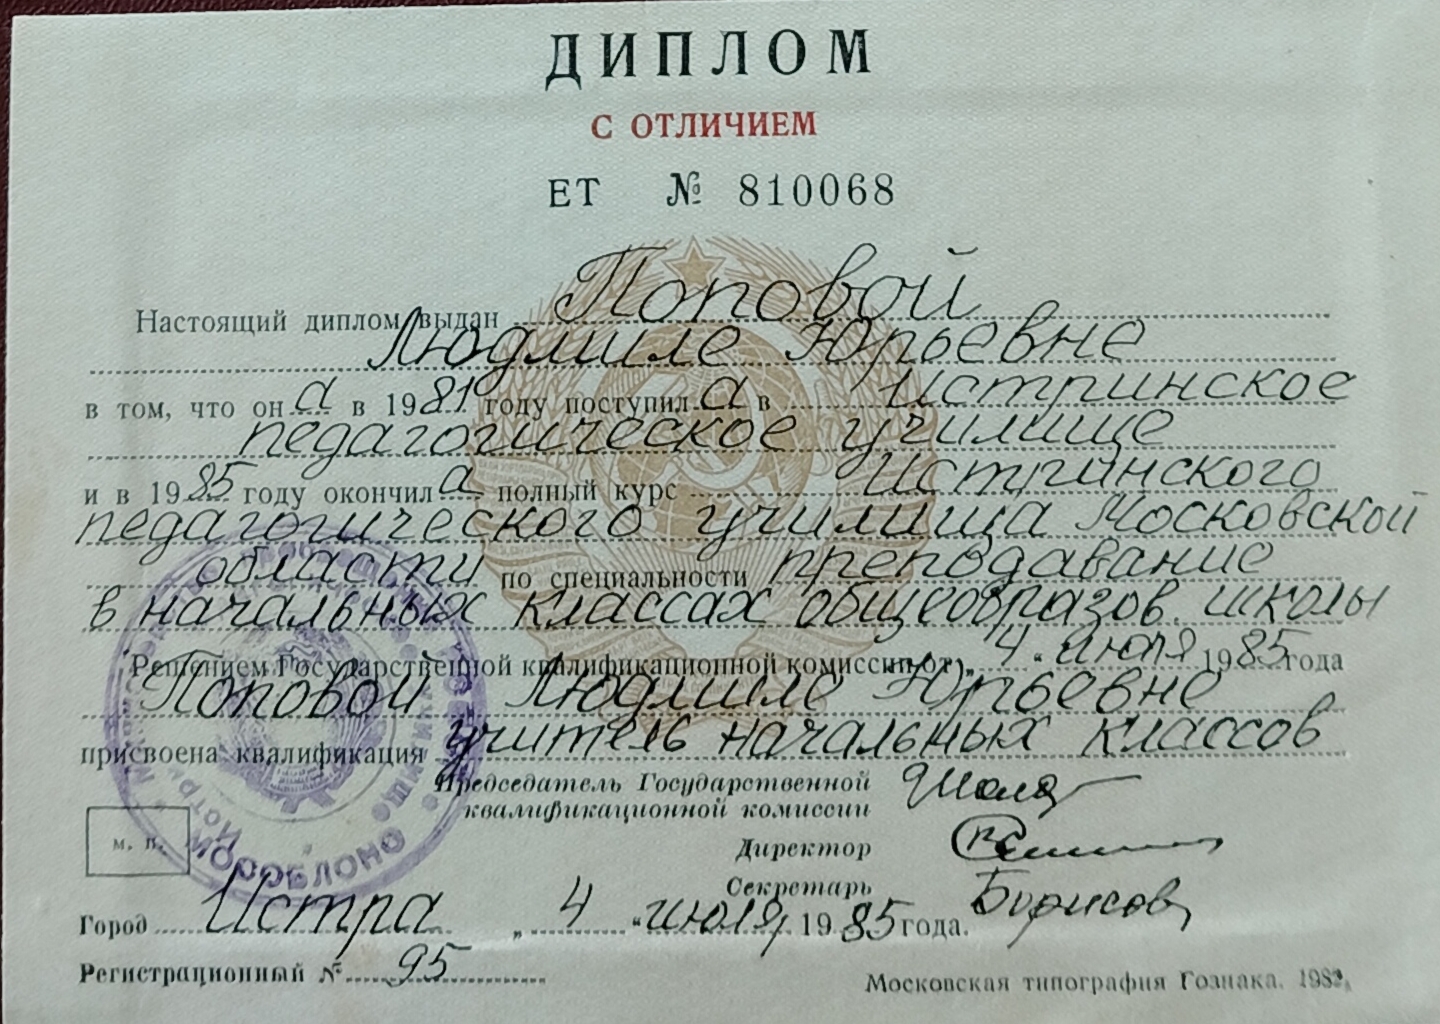 ДИПЛОМ
С ОТЛИЧИЕМ
ЕТ № 810068
Настоящий диплом выдан Поповой
Людмиле Юрьевне
в том, что он а в 1981 году поступил а в Истринское
педагогическое училище
и в 1985 году окончил а полный курс Истринского
педагогического училища Московской
области по специальности преподавание
в начальных классах общеобразов. школы
Решением Государственной квалификационной комиссии от „ 4 “ июля 1985 года
Поповой Людмиле Юрьевне
присвоена квалификация учитель начальных классов
Председатель Государственной
квалификационной комиссии
Директор
Секретарь Борисов
м. п.
МОСОБЛОНО
Город Истра „ 4 “ июля 1985 года.
Регистрационный № 95
Московская типография Гознака.